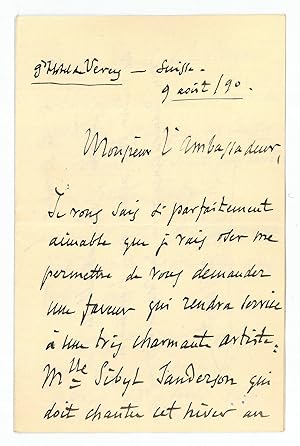 gd Hotel de Vevey — Suisse.
9 août/90.
Monsieur l'ambassadeur,
Je vous sais si parfaitement
aimable que je vais oser me
permettre de vous demander
une faveur qui rendra service
à une très charmante artiste:
Mlle Sibyl Sanderson qui
doit chanter cet hiver au